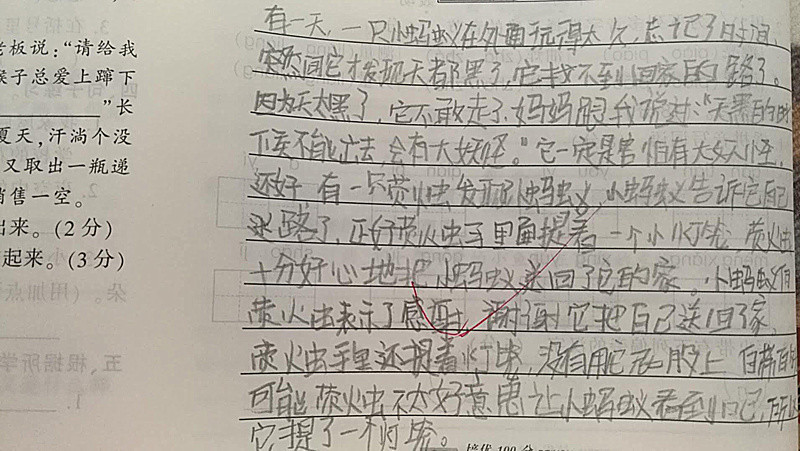 老板说：“请给我
猴子总爱上蹿下
”长
夏天，汗淌个没
又取出一瓶递
销售一空。
出来。(2分)
起来。(3分)
有一天，一只小蚂蚁在外面玩得太久，忘记了时间，
突然间它才发现天都黑了，它找不到回家的路了。
因为天太黑了，它不敢走了，妈妈跟我说过：“天黑的时
候不能出去，会有大妖怪。”它一定是害怕有大妖怪，
还好有一只萤火虫发现小蚂蚁，小蚂蚁告诉它自己
迷路了，正好萤火虫手里面提着一个小灯笼，萤火虫
十分好心地把小蚂蚁送回了它的家。小蚂蚁向
萤火虫表示了感谢，谢谢它把自己送回了家，
萤火虫手里还提着灯笼，没有用它屁股上自带的
可能萤火虫不太好意思让小蚂蚁看到自己，所以
它提了一个灯笼。
朵。(用加点
五、根据所学
1.
培优100分